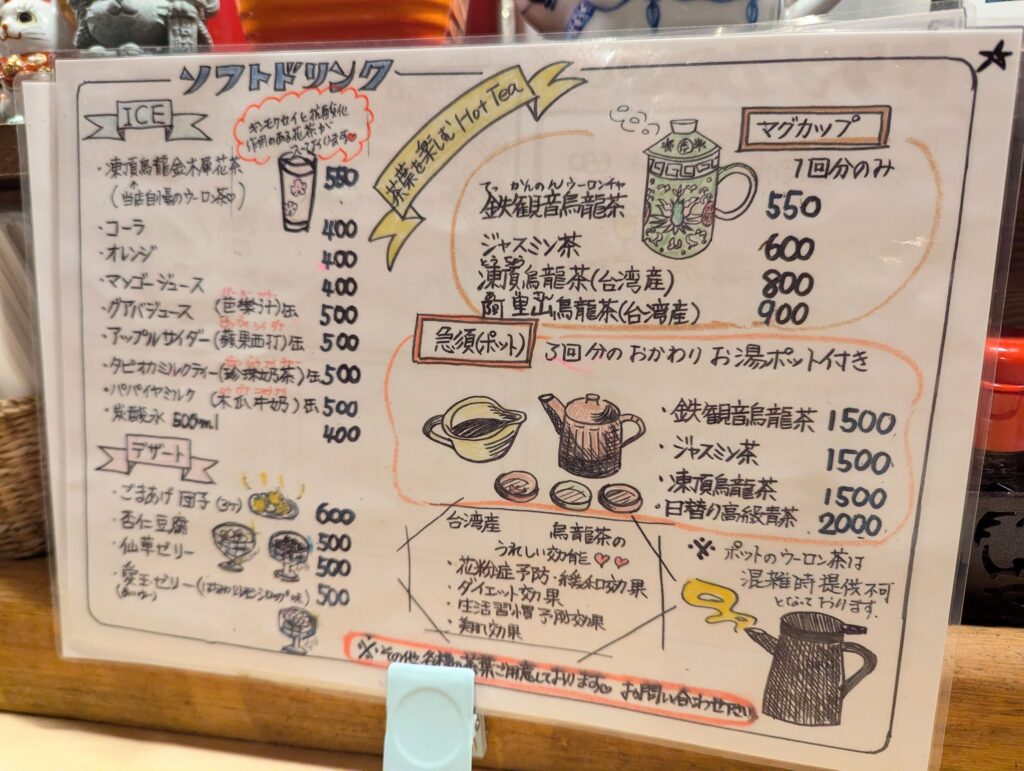 ソフトドリンク
ICE
キンモクセイと抗酸化
作用のある花茶が
入っております
・凍頂烏龍金木犀花茶 550
(当店自慢のウーロン茶)
・コーラ 400
・オレンジ 400
・マンゴージュース 400
・グアバジュース (芭樂汁)缶 500
・アップルサイダー(蘋果西打)缶 500
・タピオカミルクティー(珍珠奶茶)缶 500
・パパイヤミルク (木瓜牛奶)缶 500
・炭酸水 500ml 400
デザート
・ごまあげ団子(3ヶ) 600
・杏仁豆腐 500
・仙草ゼリー 500
・愛玉ゼリー 500
茶葉を楽しむ Hot Tea
マグカップ
1回分のみ
てっかんのんウーロンチャ
鉄観音烏龍茶 550
ジャスミン茶 600
とうちょう
凍頂烏龍茶(台湾産) 800
阿里山烏龍茶(台湾産) 900
急須(ポット)
3回分のおかわり お湯ポット付き
・鉄観音烏龍茶 1500
・ジャスミン茶 1500
・凍頂烏龍茶 1500
・日替り高級青茶 2000
台湾産 烏龍茶の
うれしい効能
・花粉症予防・緩和効果
・ダイエット効果
・生活習慣予防効果
・美肌効果
※ ポットのウーロン茶は
混雑時提供不可
となっております。
※その他各種お茶葉ご用意しております。お問い合わせ下さい